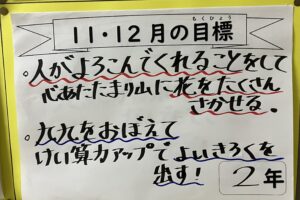 もくひょう
11・12月の目標
。人がよろこんでくれることをして
心あたたまり山に花をたくさん
さかせる。
。九九をおぼえて
けい算力アップでよいきろくを
出す!
2年